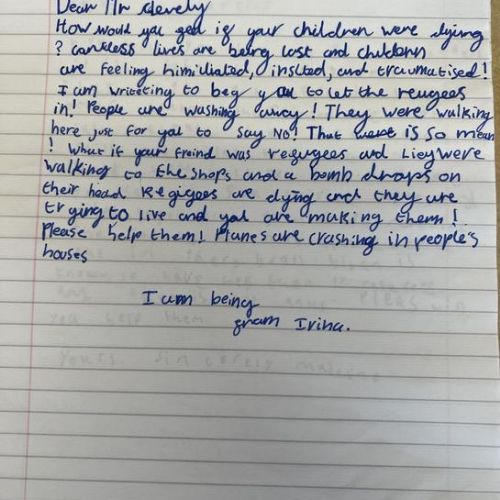 Dear Mr clevely
How would you geel ig your children were dying
? countless lives are being lost and children
are feeling himiliated, inslted, and traumatised!
I am writeting to beg you to let the reugees
in! People are washing away! They were walking
here just for you to say No! That is so mean
! What if your freind was regugees and they were
walking to the shops and a bomb drops on
their head Regigees are dying and they are
trying to live and you are making them!
Please help them! Planes are crashing in people's
houses
I am being
gram Irina.